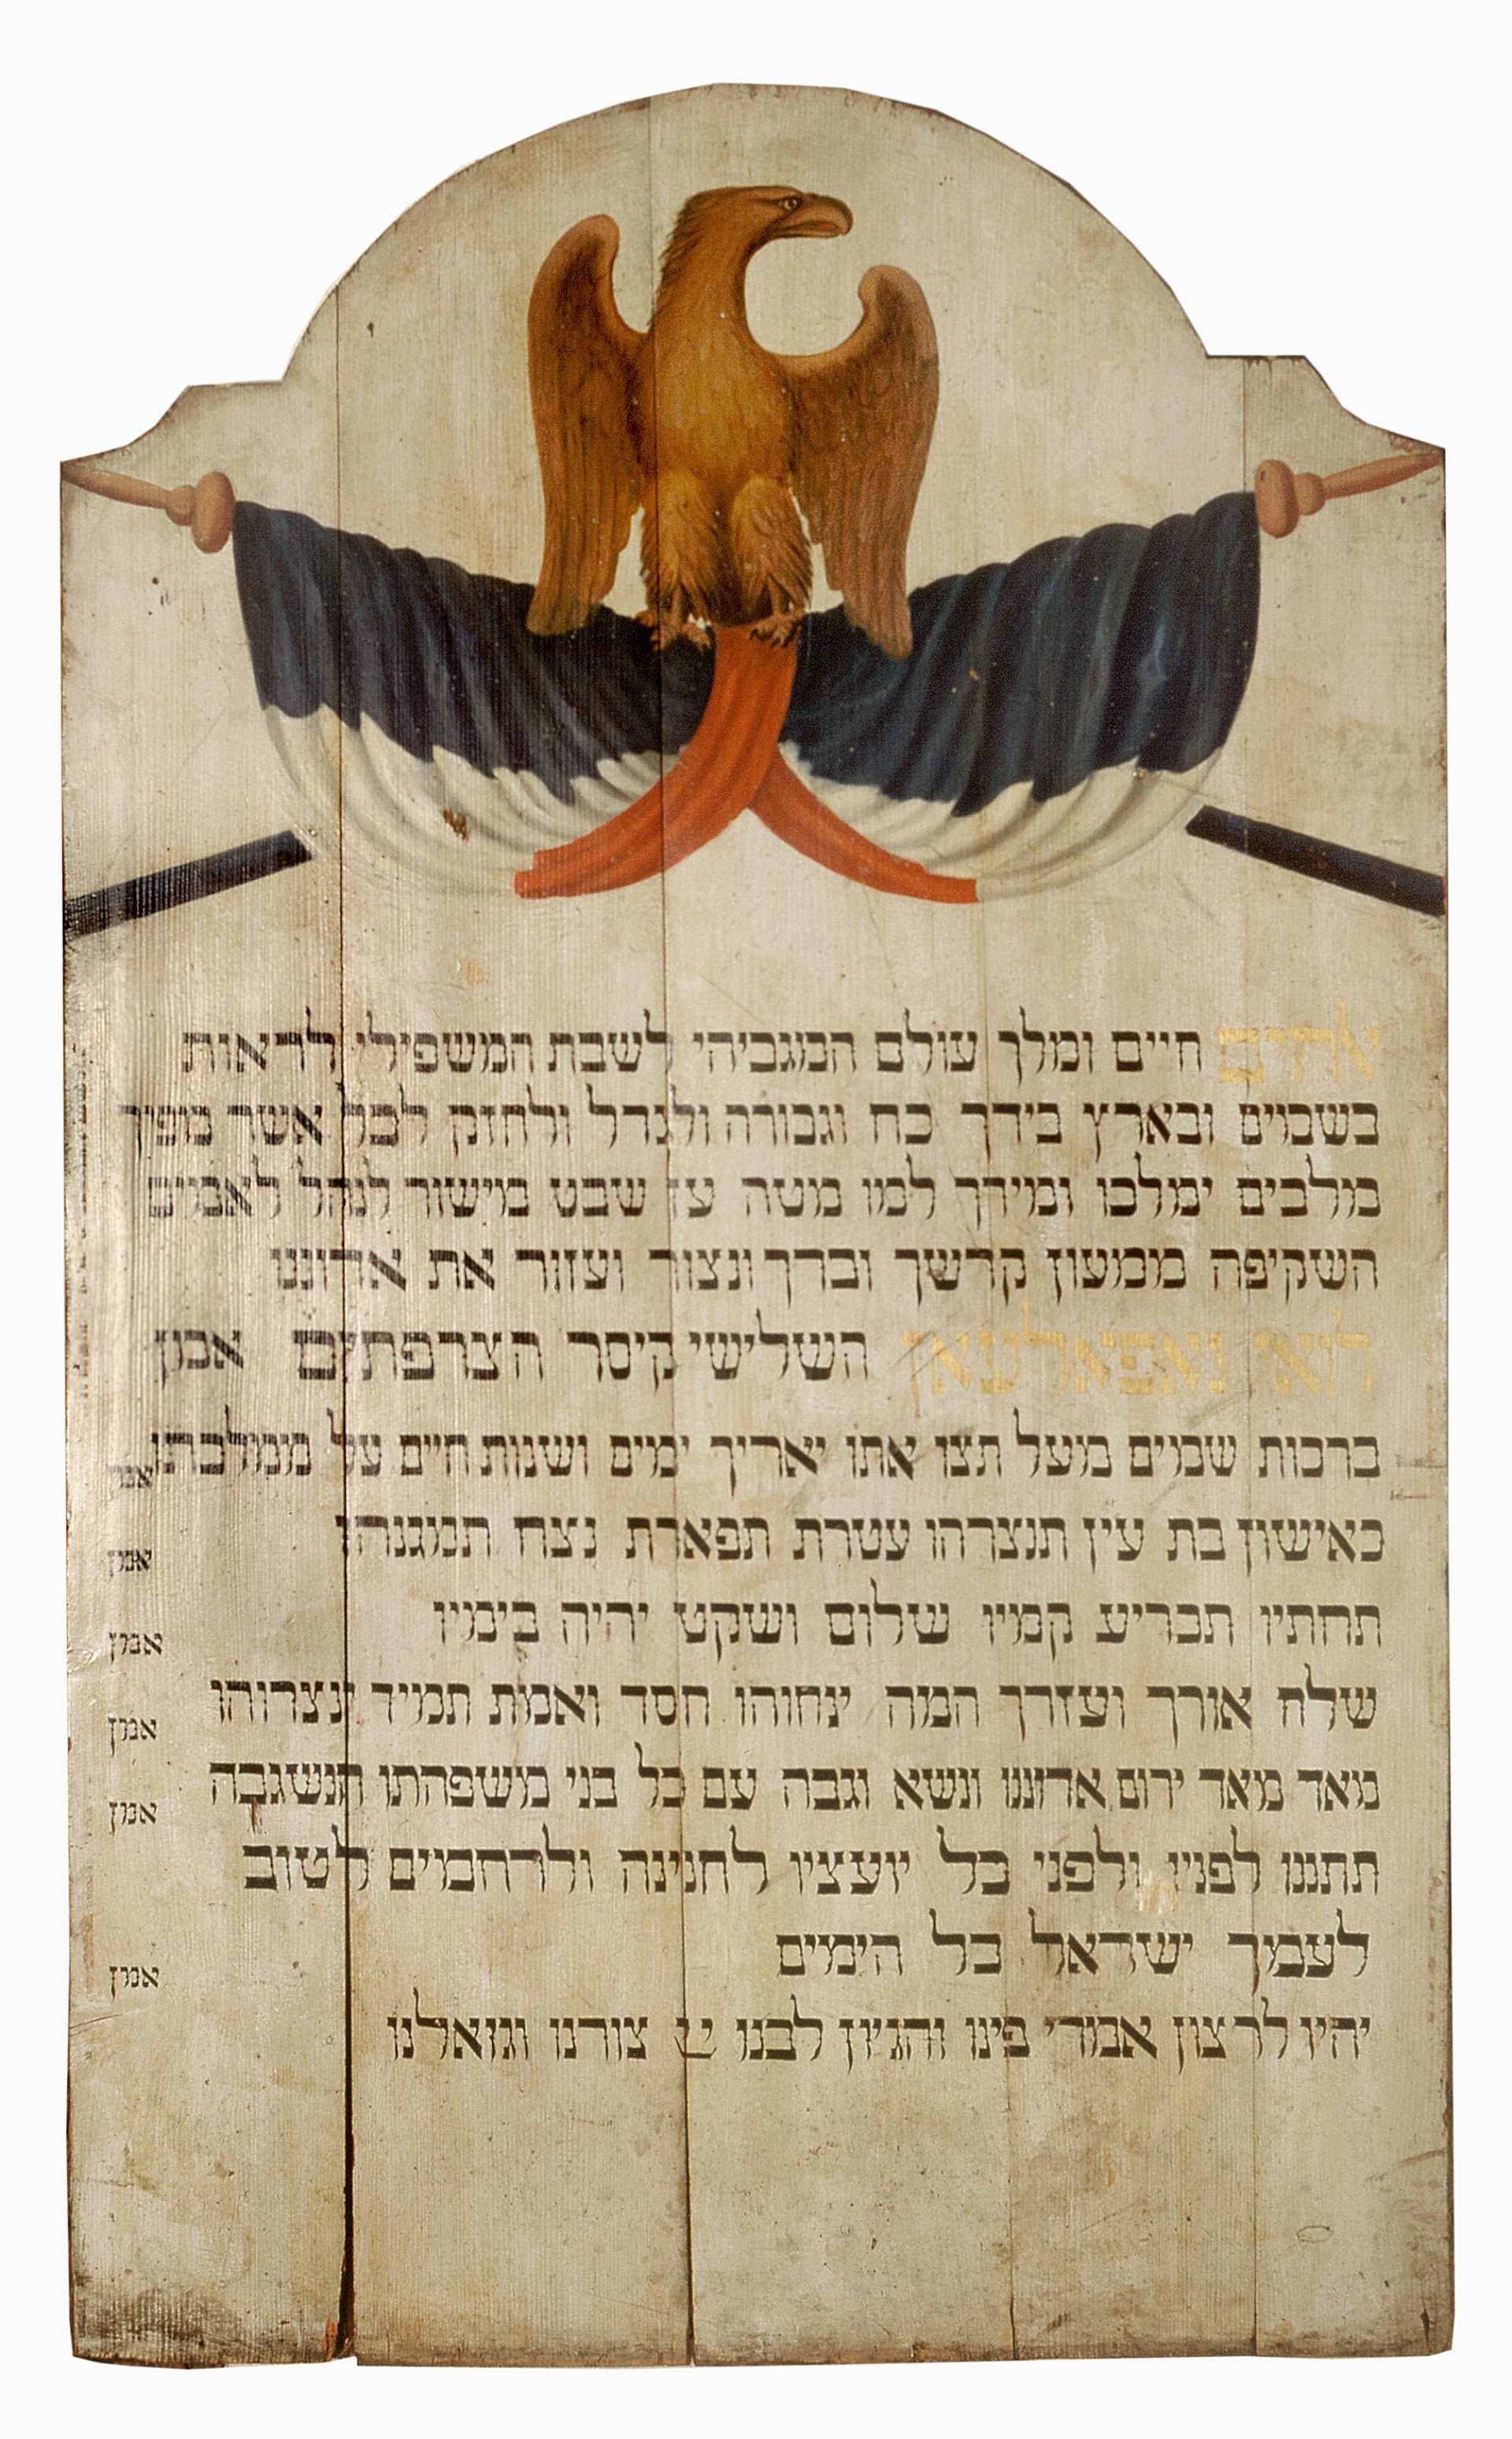 אלהים חיים ומלך עולם המגביהי לשבת המשפילי לראות
בשמים ובארץ בידך כח וגבורה ולגדל ולחזק לכל אשר מפיך
מלכים ימלכו ומידך למו מטה עז שבט מישור לנהל לאמים
השקיפה ממעון קדשך וברך ונצור ועזור את אדוננו
לואי נאפאלעאן השלישי קיסר הצרפתים אמון
ברכות שמים מעל תצו אתו יאריך ימים ושנות חיים על ממלכתו אמן
כאישון בת עין תנצרהו עטרת תפארת נצח תמגנהו אמן
תחתיו תכריע קמיו שלום ושקט יהיה בימיו אמן
שלח אורך ועזרך המה ינחוהו חסד ואמת תמיד ינצרוהו אמן
מאד מאד ירום אדוננו ונשא וגבה עם כל בני משפחתו תנשגבה אמן
תתננו לפניו ולפני כל יועציו לחנינה ולרחמים לטוב
לעמך ישראל כל הימים אמן
יהיו לרצון אמרי פינו והגיון לבנו צורנו וגואלנו